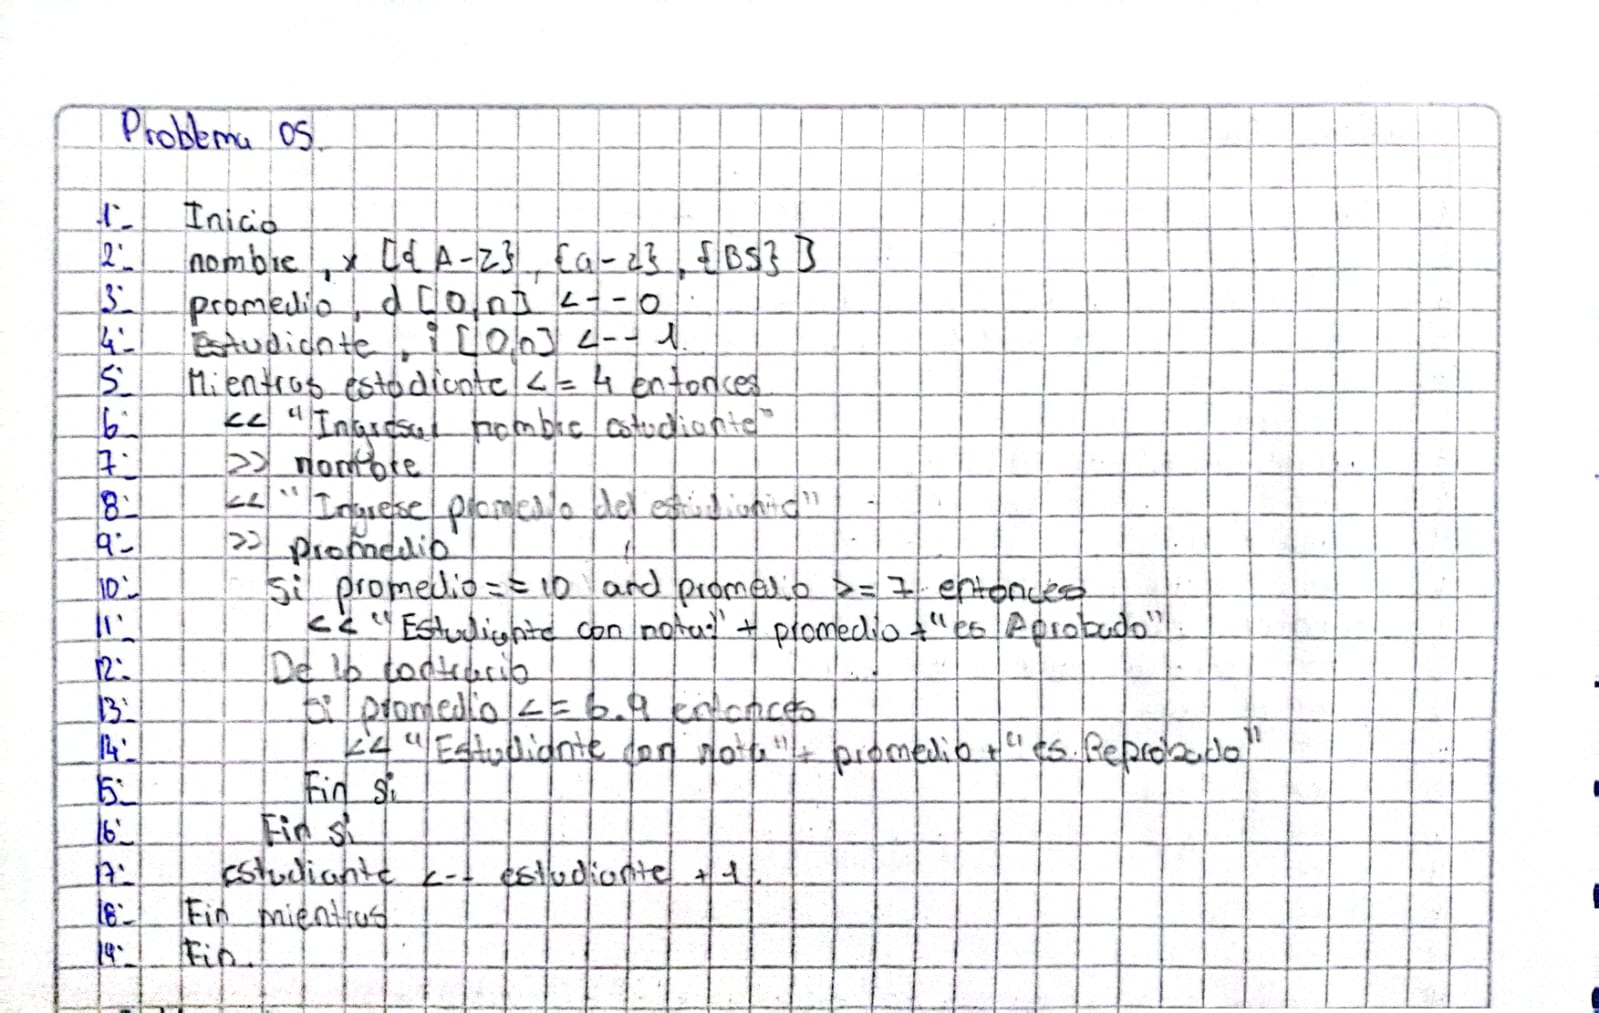 Problema 05.
1:- Inicio
2:- nombre, x [{A-Z}, {a-z}, {BS}]
3:- promedio, d [0,n] <--0
4:- Estudiante, i [0,n] <-- 1.
5:- Mientras estudiante <= 4 entonces
6:- << "Ingresar nombre estudiante"
7:- >> nombre
8:- << "Ingrese promedio del estudiante"
9:- >> promedio
10:- Si promedio == 10 and promedio >= 7 entonces
11:- << "Estudiante con nota:" + promedio + "es Aprobado"
12:- De lo contrario
13:- Si promedio <= 6.9 entonces
14:- << "Estudiante con nota" + promedio + "es Reprobado"
15:- Fin si
16:- Fin si
17:- estudiante <-- estudiante + 1.
18:- Fin mientras
19:- Fin.